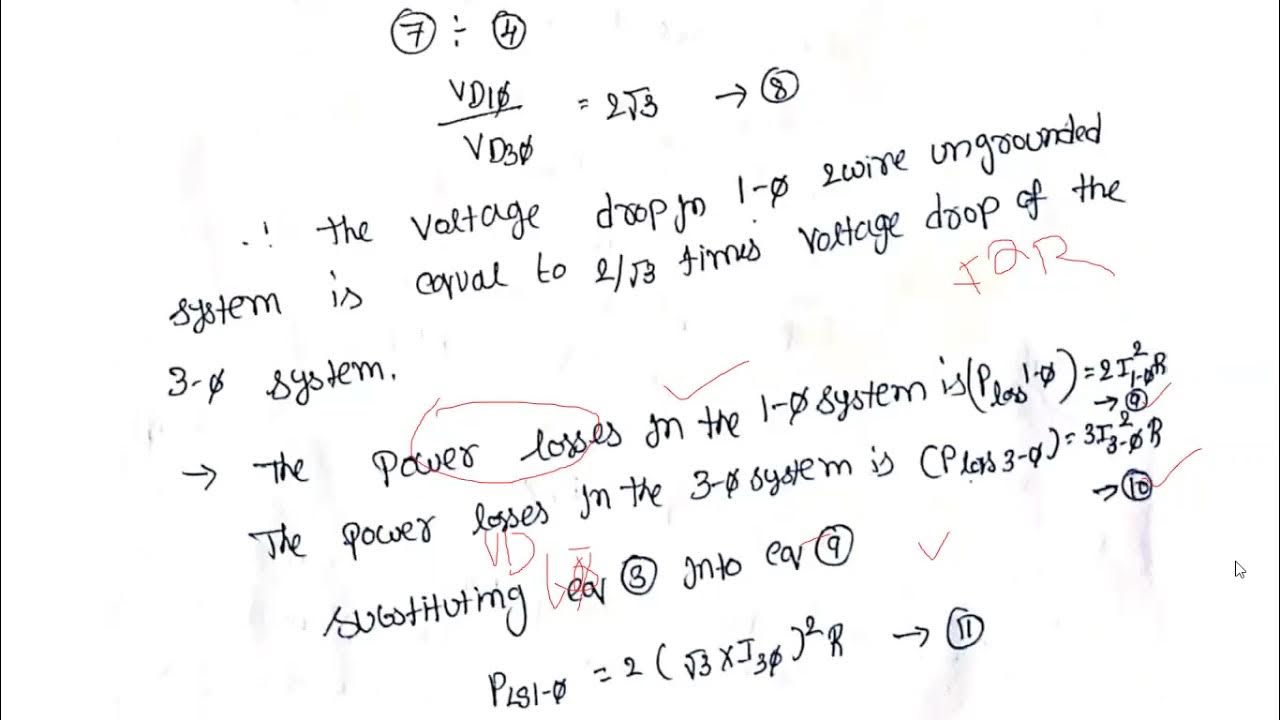 ⑦ ÷ ④
VD1ϕ / VD3ϕ = 2√3 → ⑧
∴ the voltage drop in 1-ϕ 2wire ungrounded
system is equal to 2/√3 times voltage drop of the
I2R
3-ϕ system.
→ The power losses in the 1-ϕ system is (Plos1-ϕ) = 2I²1-ϕR
→ ⑨
The power losses in the 3-ϕ system is (Ploss3-ϕ) = 3I²3-ϕR
→ ⑩
VD
substituting eq ③ into eq ⑨
PLS1-ϕ = 2 (√3 × I3ϕ)² R → ⑪